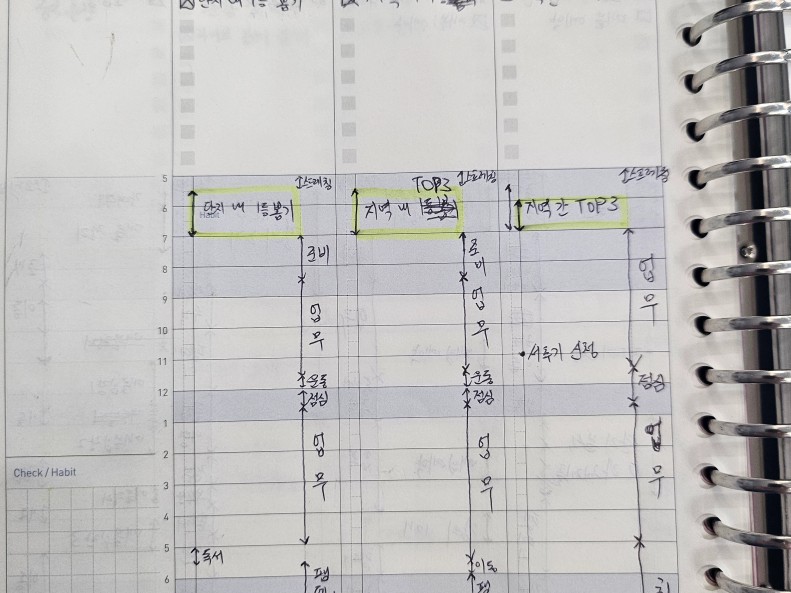 단지 내 1등 뽑기
5
스트레칭
TOP3
스트레칭
스트레칭
6
단지 내 1등 뽑기
지역 내
지역 간 TOP3
7
준비
준비
8
업무
업무
업무
9
10
11
서투기 신청
운동
운동
점심
12
점심
점심
1
업무
업무
업무
2
Check / Habit
3
4
5
독서
이동
6